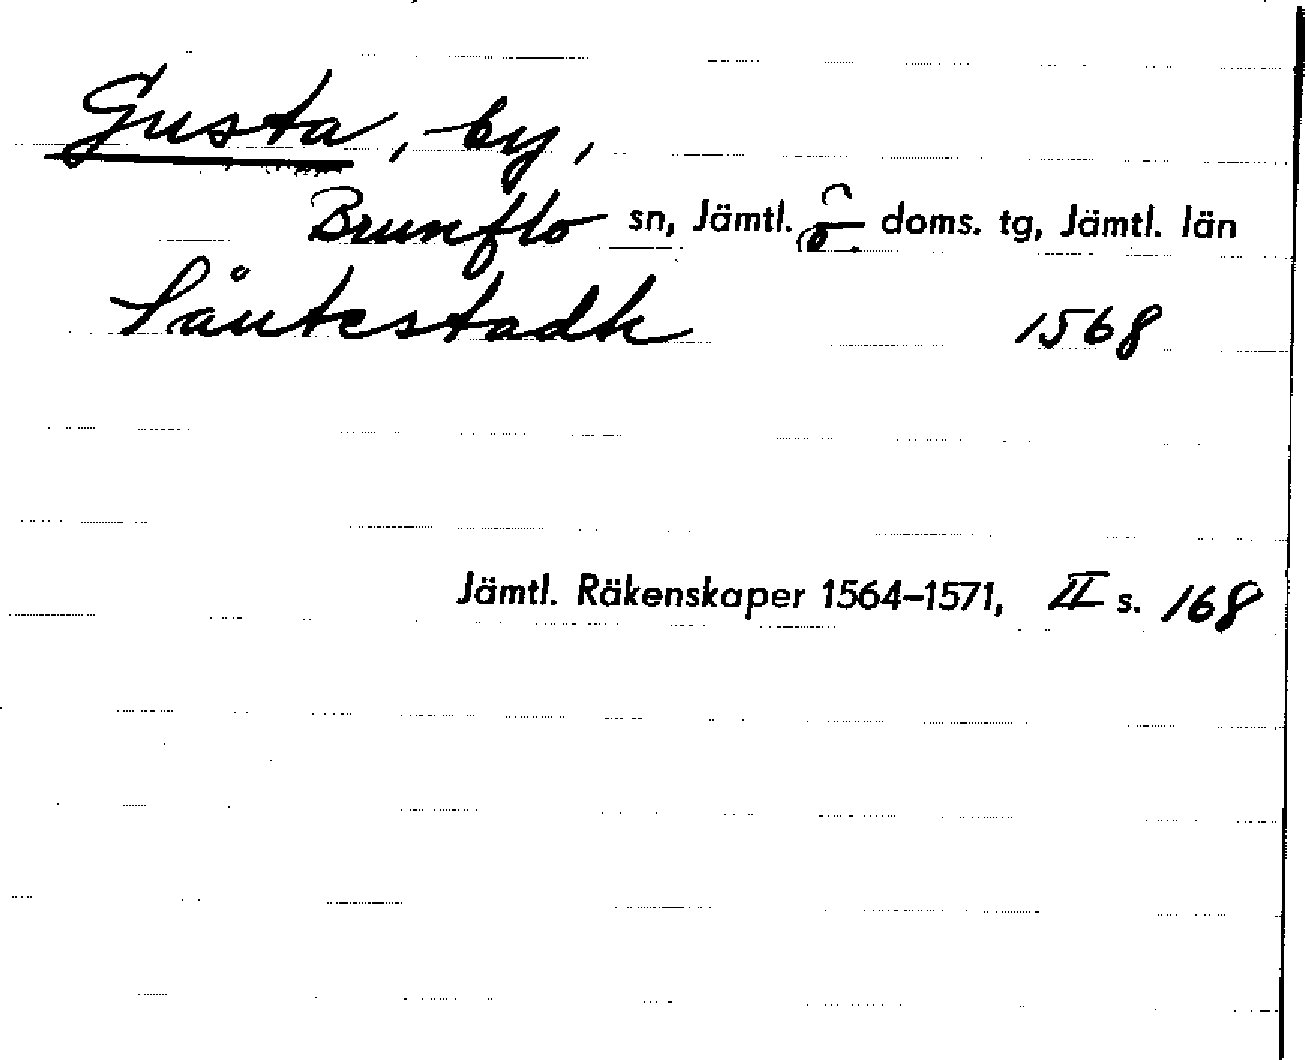 Gusta, by,
Brunflo sn, Jämtl. doms. tg, Jämtl. län
1568
Jämtl. Räkenskaper 1564–1571, II s. 168